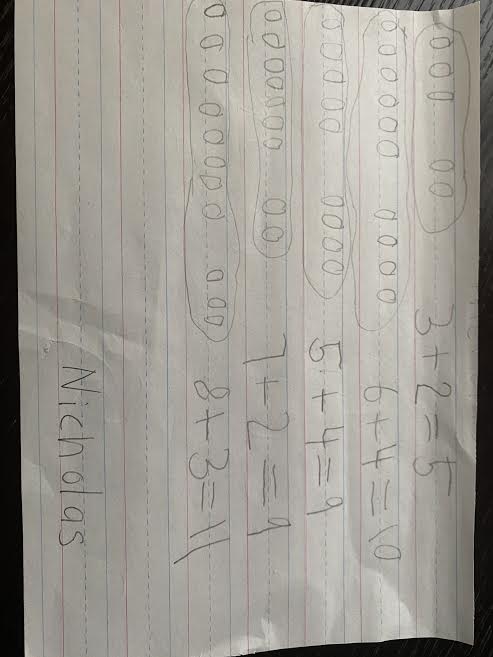 3+2=5
6+4=10
5+4=9
7+2=9
8+3=11
Nicholas